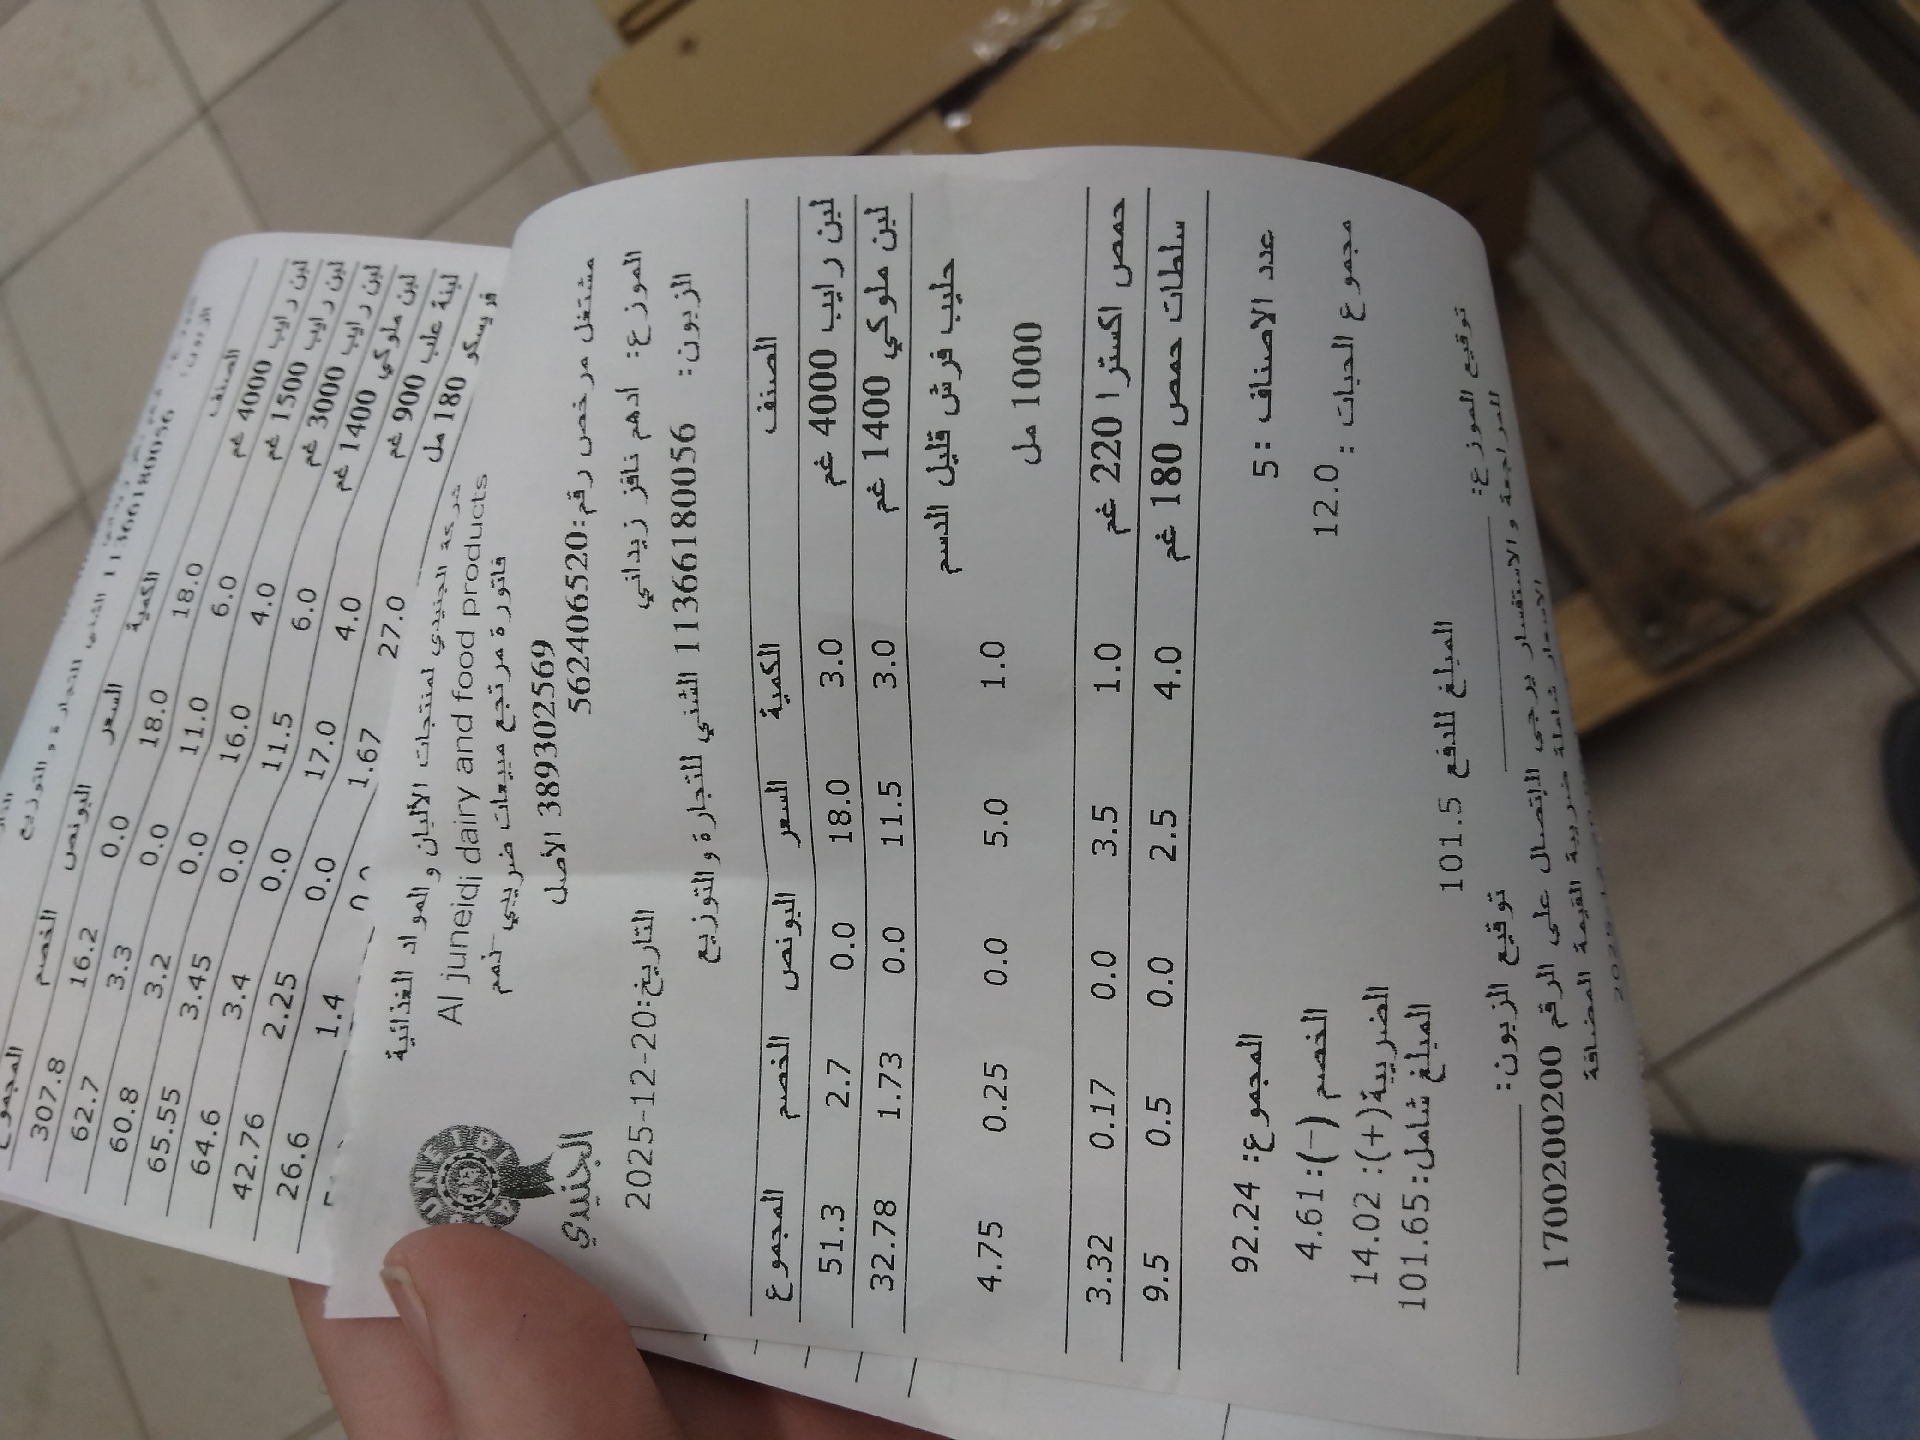 الصنف الكمية السعر البونص الخصم المجموع
لبن رايب 4000 غم 18.0 18.0 0.0 16.2 307.8
لبن رايب 1500 غم 6.0 11.0 0.0 3.3 62.7
لبن رايب 3000 غم 4.0 16.0 0.0 3.2 60.8
لبن ملوكي 1400 غم 6.0 11.5 0.0 3.45 65.55
لبنة علب 900 غم 4.0 17.0 0.0 3.4 64.6
فريسكو 180 مل 27.0 1.67 0.0 2.25 42.76
1.4 26.6
شركة الجنيدي لمنتجات الألبان و المواد الغذائية
Al juneidi dairy and food products
فاتورة مرتجع مبيعات ضريبي
389302569 الأصل
مشتغل مرخص رقم:562406520
الجنيدي
الموزع: ادهم نافز زيداني
التاريخ:2025-12-20
الزبون: 11366180056 الثني للتجارة و التوزيع
الصنف الكمية السعر البونص الخصم المجموع
لبن رايب 4000 غم 3.0 18.0 0.0 2.7 51.3
لبن ملوكي 1400 غم 3.0 11.5 0.0 1.73 32.78
حليب فرش قليل الدسم
1000 مل 1.0 5.0 0.0 0.25 4.75
حمص اكسترا 220 غم 1.0 3.5 0.0 0.17 3.32
سلطات حمص 180 غم 4.0 2.5 0.0 0.5 9.5
عدد الاصناف :5
المجموع: 92.24
مجموع الحبات : 12.0
الخصم (-):4.61
الضريبة(+): 14.02
المبلغ شامل:101.65
المبلغ للدفع 101.5
توقيع الموزع:
توقيع الزبون:
للمراجعة و الاستفسار يرجى الإتصال على الرقم 1700200200
الاسعار شاملة ضريبة القيمة المضافة